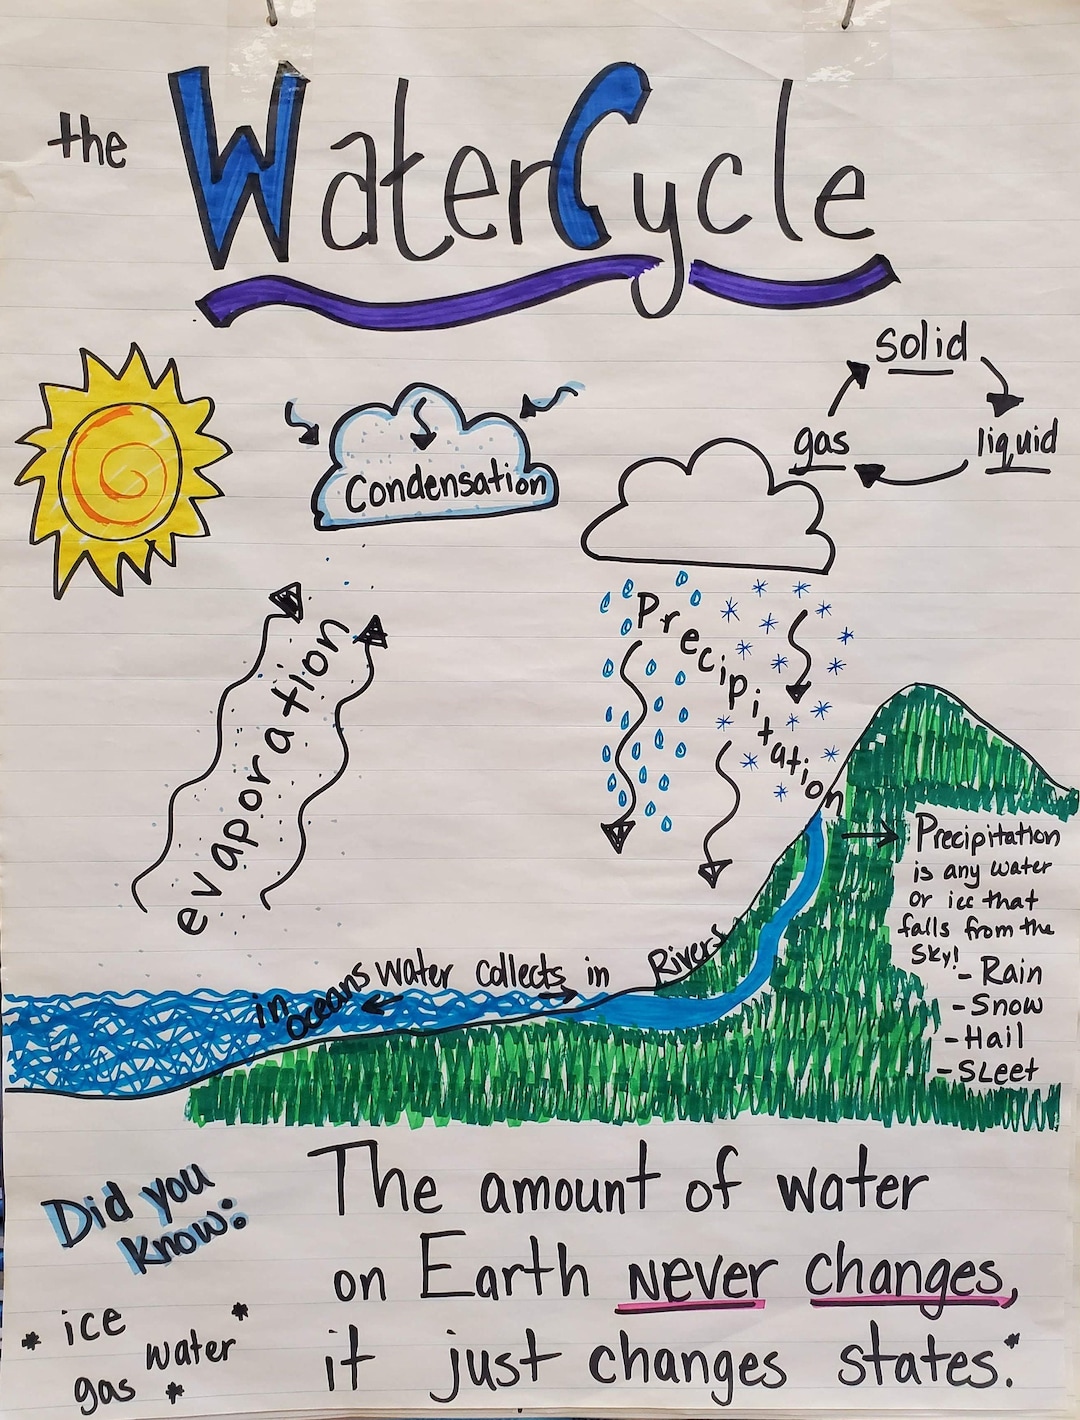 the Water Cycle
solid
gas
liquid
Condensation
Precipitation
evaporation
Precipitation
is any water
or ice that
falls from the
sky!
- Rain
- Snow
- Hail
- Sleet
Water collects in
Rivers
in oceans
Did you
know:
The amount of water
on Earth never changes,
it just changes states.*
* ice *
water
gas *